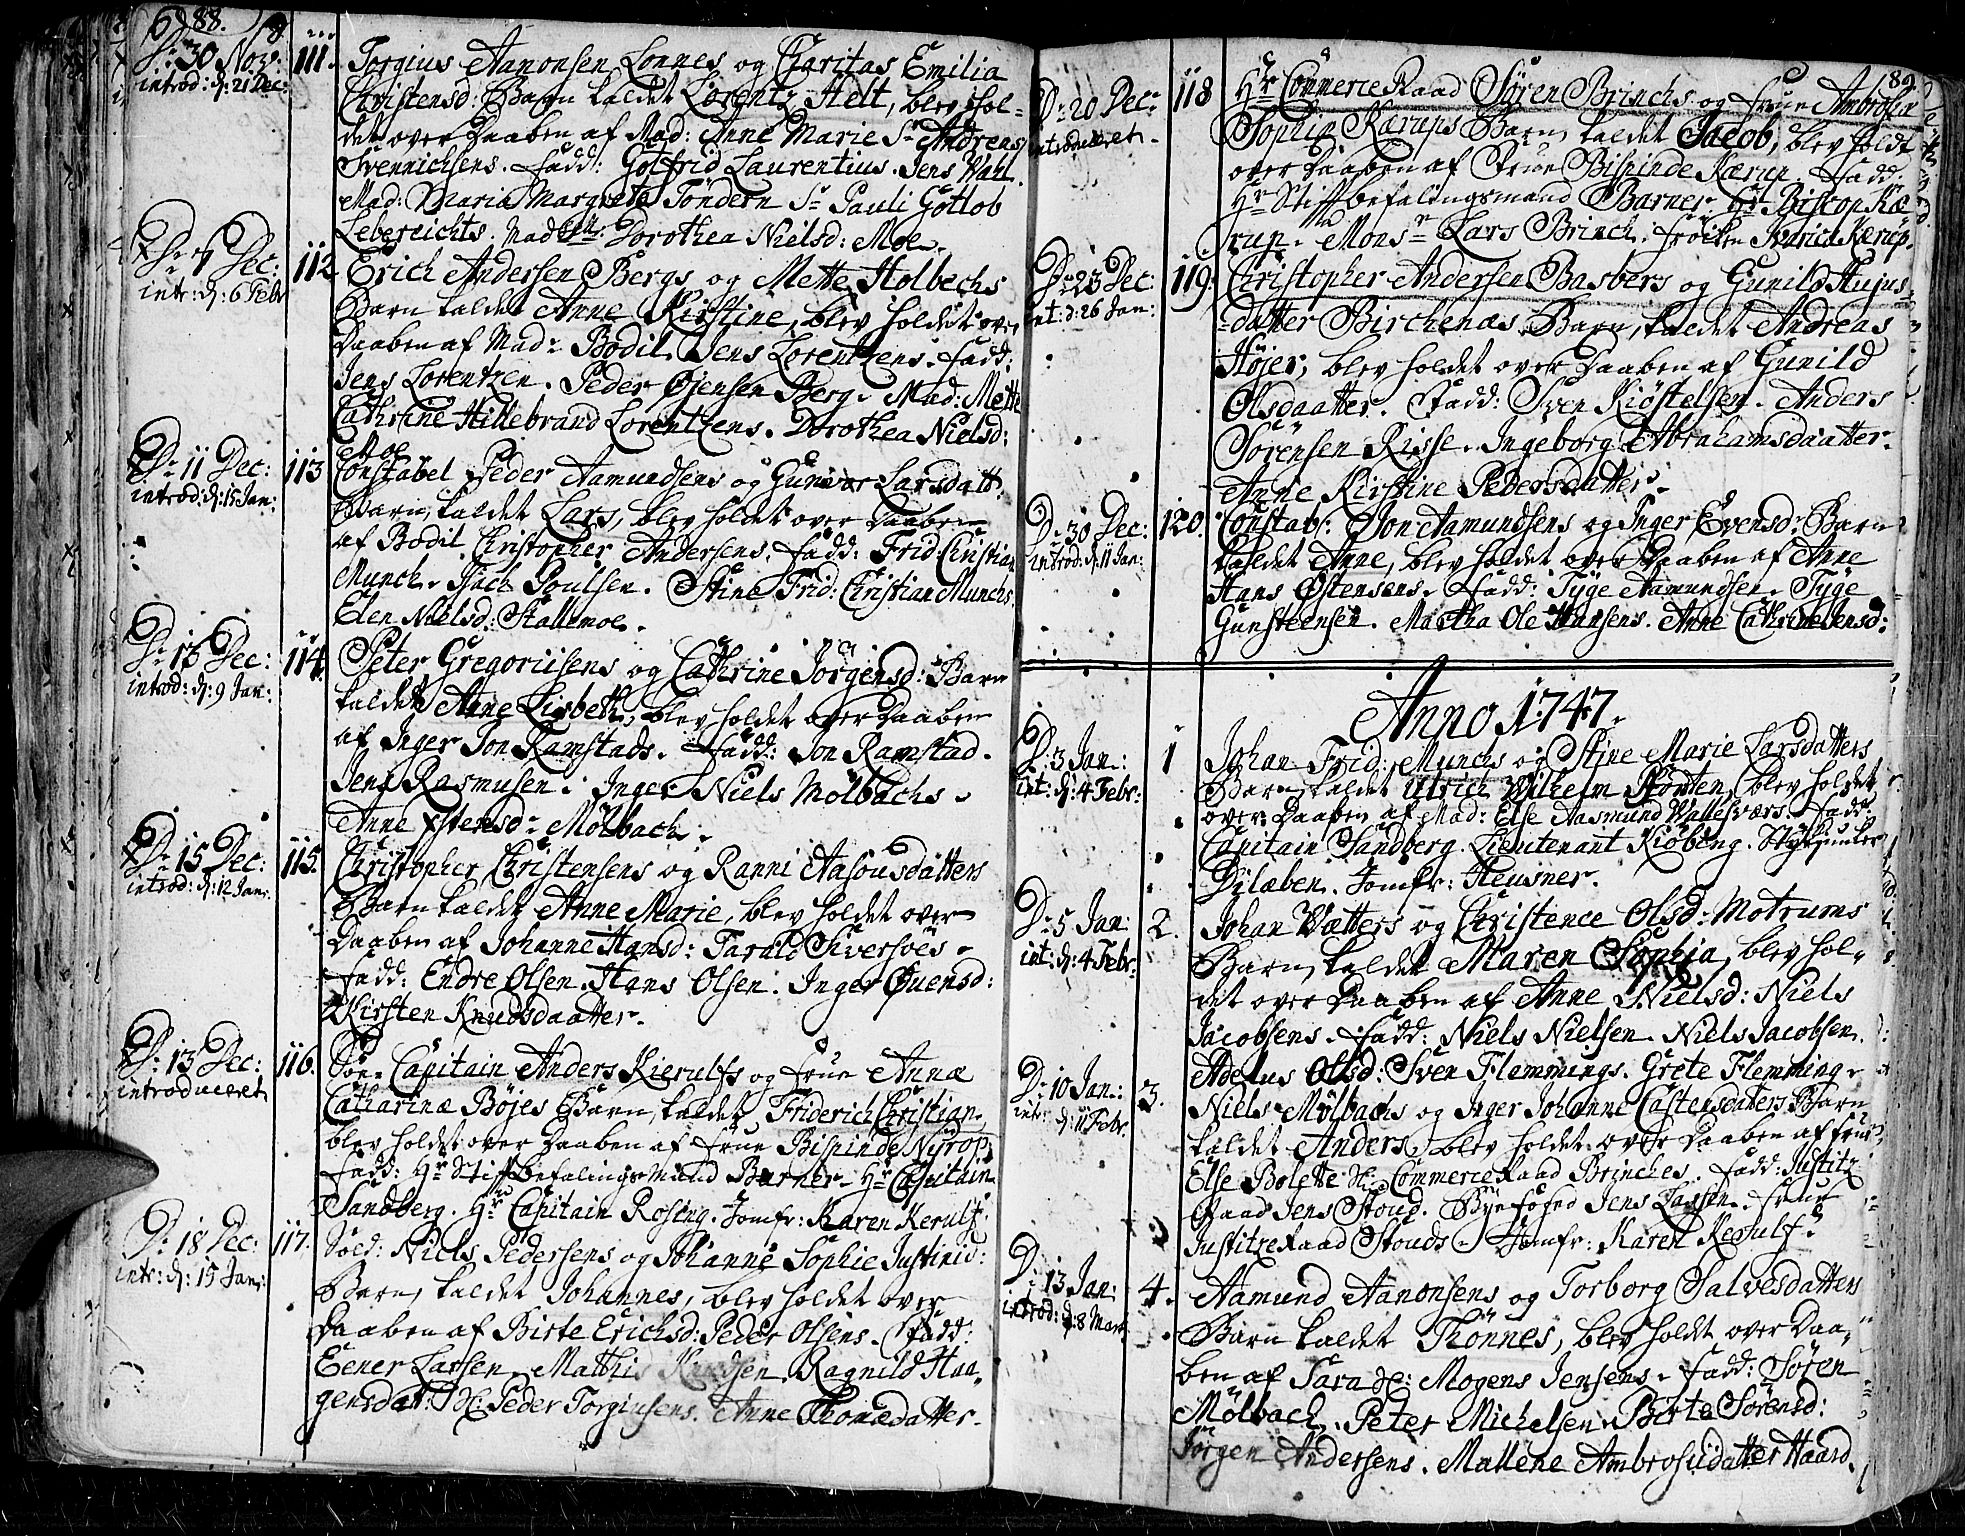 88.
D: 30 Nov: 111. Torgius Aanonsen Lonnes og Charitas Emilia
introd: d: 21 Dec: Christensd: Barn kaldet Lorentz Helt, blev hol-
det over Daaben af Mad: Anne Marie Sr Andreas
Svennichsens. Fadd: Gotfrid Laurentius. Jens Wahl.
Mad: Maria Margrete Töndern Sr Pauli Gotlob
Lebereichts. Madlle Dorothea Nielsd: Moe.
Dec: 112 Erich Andersen Bergs og Mette Holbechs
intr: d: 6 Febr Barn kaldet Anne Kirstine, blev holdet over
Daaben af Mad: Bodil Jens Lorentzens. Fadd:
Jens Lorentzen. Peder Øjensen Berg. Mad: Mette
Cathrine Hillebrand Lorentzens. Dorothea Nielsd:
Moe
D: 11 Dec: 113 Constabel Peder Aamundsens og Gunvor Larsdatt:
introd: d: 15 Jan: Barn, kaldet Lars, blev holdet over Daaben
af Bodil Christopher Andersens. Fadd: Frid: Christian
Munch. Poulsen. Stine Frid: Christian Munchs.
Elen Nielsd: Stallemoe.
D: 13 Dec: 114. Peter Gregoriisens og Cathrine Jörgensd: Barn
introd: d: 9 Jan: kaldet Anne Lisbeth, blev holdet over Daaben
af Inger Jon Ramstads. Fadd: Jon Ramstad.
Jens Rasmusen. Inger Niels Mölbachs.
Anne Mölbach.
D: 15 Dec: 115. Christopher Christensens og Ranni Aasousdatters
introd: d: 12 Jan: Barn kaldet Anne Marie, blev holdet over
Daaben af Johanne Hansd: Tarald Siversøes.
Fadd: Endre Olsen. Hans Olsen. Inger Øuensd:
Kirsten Knudsdaatter.
D: 13 Dec: 116. Capitain Anders Kierulfs og Frue Annæ
introduceret Catharinæ Böjes Barn, kaldet Friderich Christian,
blev holdet over Daaben af Frue Bispinde Nyrop.
Fadd: Hr Stiftbefalings Mand Barner. Hr Capitain
Sandberg. Hr Capitain Rosing. Jomfr: Karen Kerulf.
D: 18 Dec: 117. Sold: Niels Pedersens og Johanne Sophie Justinid:
intr: d: 15 Jan: Barn, kaldet Johannes, blev holdet over
Daaben af Birte Erichsd: Peder Olsens. Fadd:
Eener Larsen. Mathis Knudsen. Ragnild Haa-
gensdat: Peder Torgiusens. Anne Thomedatter.
89
D: 20 Dec: 118 Hr Commerce Raad Sören Brinchs og Frue Ambrosia
introduceret. Sophia Kærups Barn, kaldet Jacob, blev holdt
over Daaben af Frue Bispinde Kærup. Fadd:
Hr Stiftbefalingsmand Barner. Hr Biscop Kæ
rup. Monsr Lars Brinch. Frøiken Maria Kærup.
D: 23 Dec: 119. Christopher Andersen Basbergs og Gunild Hujus-
int: d: 26 Jan: datter Birchenæs Barn, kaldet Andreas
Höjer, blev holdet over Daaben af Gunild
Olsdaatter. Fadd: Sven Kiöstelsen. Anders
Sörensen Risse. Ingeborg Abrahamsdaatter.
Anne Kirstine Pedersdatter.
D: 30 Dec: 120. Constab: Jon Aamundsens og Inger Evensd: Barn
introd: d: 11 Jan: kaldet Anne, blev holdet over Daaben af Anne
Hans Østensens. Fadd: Tyge Aamundsen. Tyge
Gunsteensen. Martha Ole Hansens. Anne Cathrine Jensd:
Anno 1747.
D: 3 Jan: 1 Johan Frid: Munchs og Stine Marie Larsdatters
int: d: 4 Febr: Barn, kaldet Ulrich Wilhelm Pörtien, blev holdet
over Daaben af Mad: Else Aasmund Wattesværs. Fadd:
Capitain Sandberg. Lieutenant Kiöbing. Stykjunker
Dylæben. Jomfr: Heusner.
D: 5 Jan: 2. Johan Vætters og Christence Olsd: Motrums
int: d: 4 Febr: Barn, kaldet Maren Sophia, blev hol-
det over Daaben af Anne Nielsd: Niels
Jacobsens. Fadd: Niels Nielsen. Niels Jacobsen.
Adelus Olsd: Sven Flemmings. Grete Flemming.
D: 10 Jan: 3. Niels Mölbachs og Inger Johanne Castensdaters Barn
intr: d: 11 Febr. kaldet Anders, blev holdet over Daaben af Frue
Else Bolette Commerce Raad Brinches. Fadd: Justitz
Raad Jens Stoud. Byefoged Jens Larsen. Frue
Justitzeraad Stouds. Jomfr: Karen Kerulf.
D: 13 Jan: 4. Aamund Aanonsens og Torborg Salvesdatters
introd: d: 8 Mart: Barn kaldet Thönnes, blev holdt over Daa-
ben af Sara Mogens Jensens. Fadd: Sören
Mölbach. Peter Michelsen. Birte Sörensd:
Jörgen Andersens. Mallene Ambrosiidatter Haard.